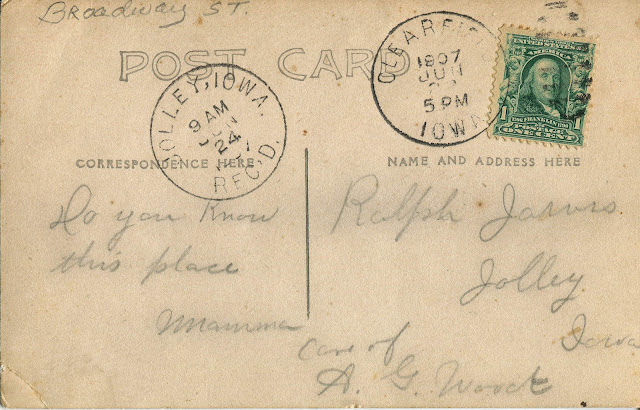 Broadway ST.
POST CARD
CLEARFIELD
1907
JUN
5 PM
IOWA
UNITED STATES OF AMERICA
1 FRANKLIN 1
POSTAGE
ONE CENT
JOLLEY, IOWA.
9 AM
JUN
24
REC'D.
CORRESPONDENCE HERE
NAME AND ADDRESS HERE
Do you know
this place
Mamma
Ralph Jarvis
Jolley
Iowa
Care of
A. G. Wood